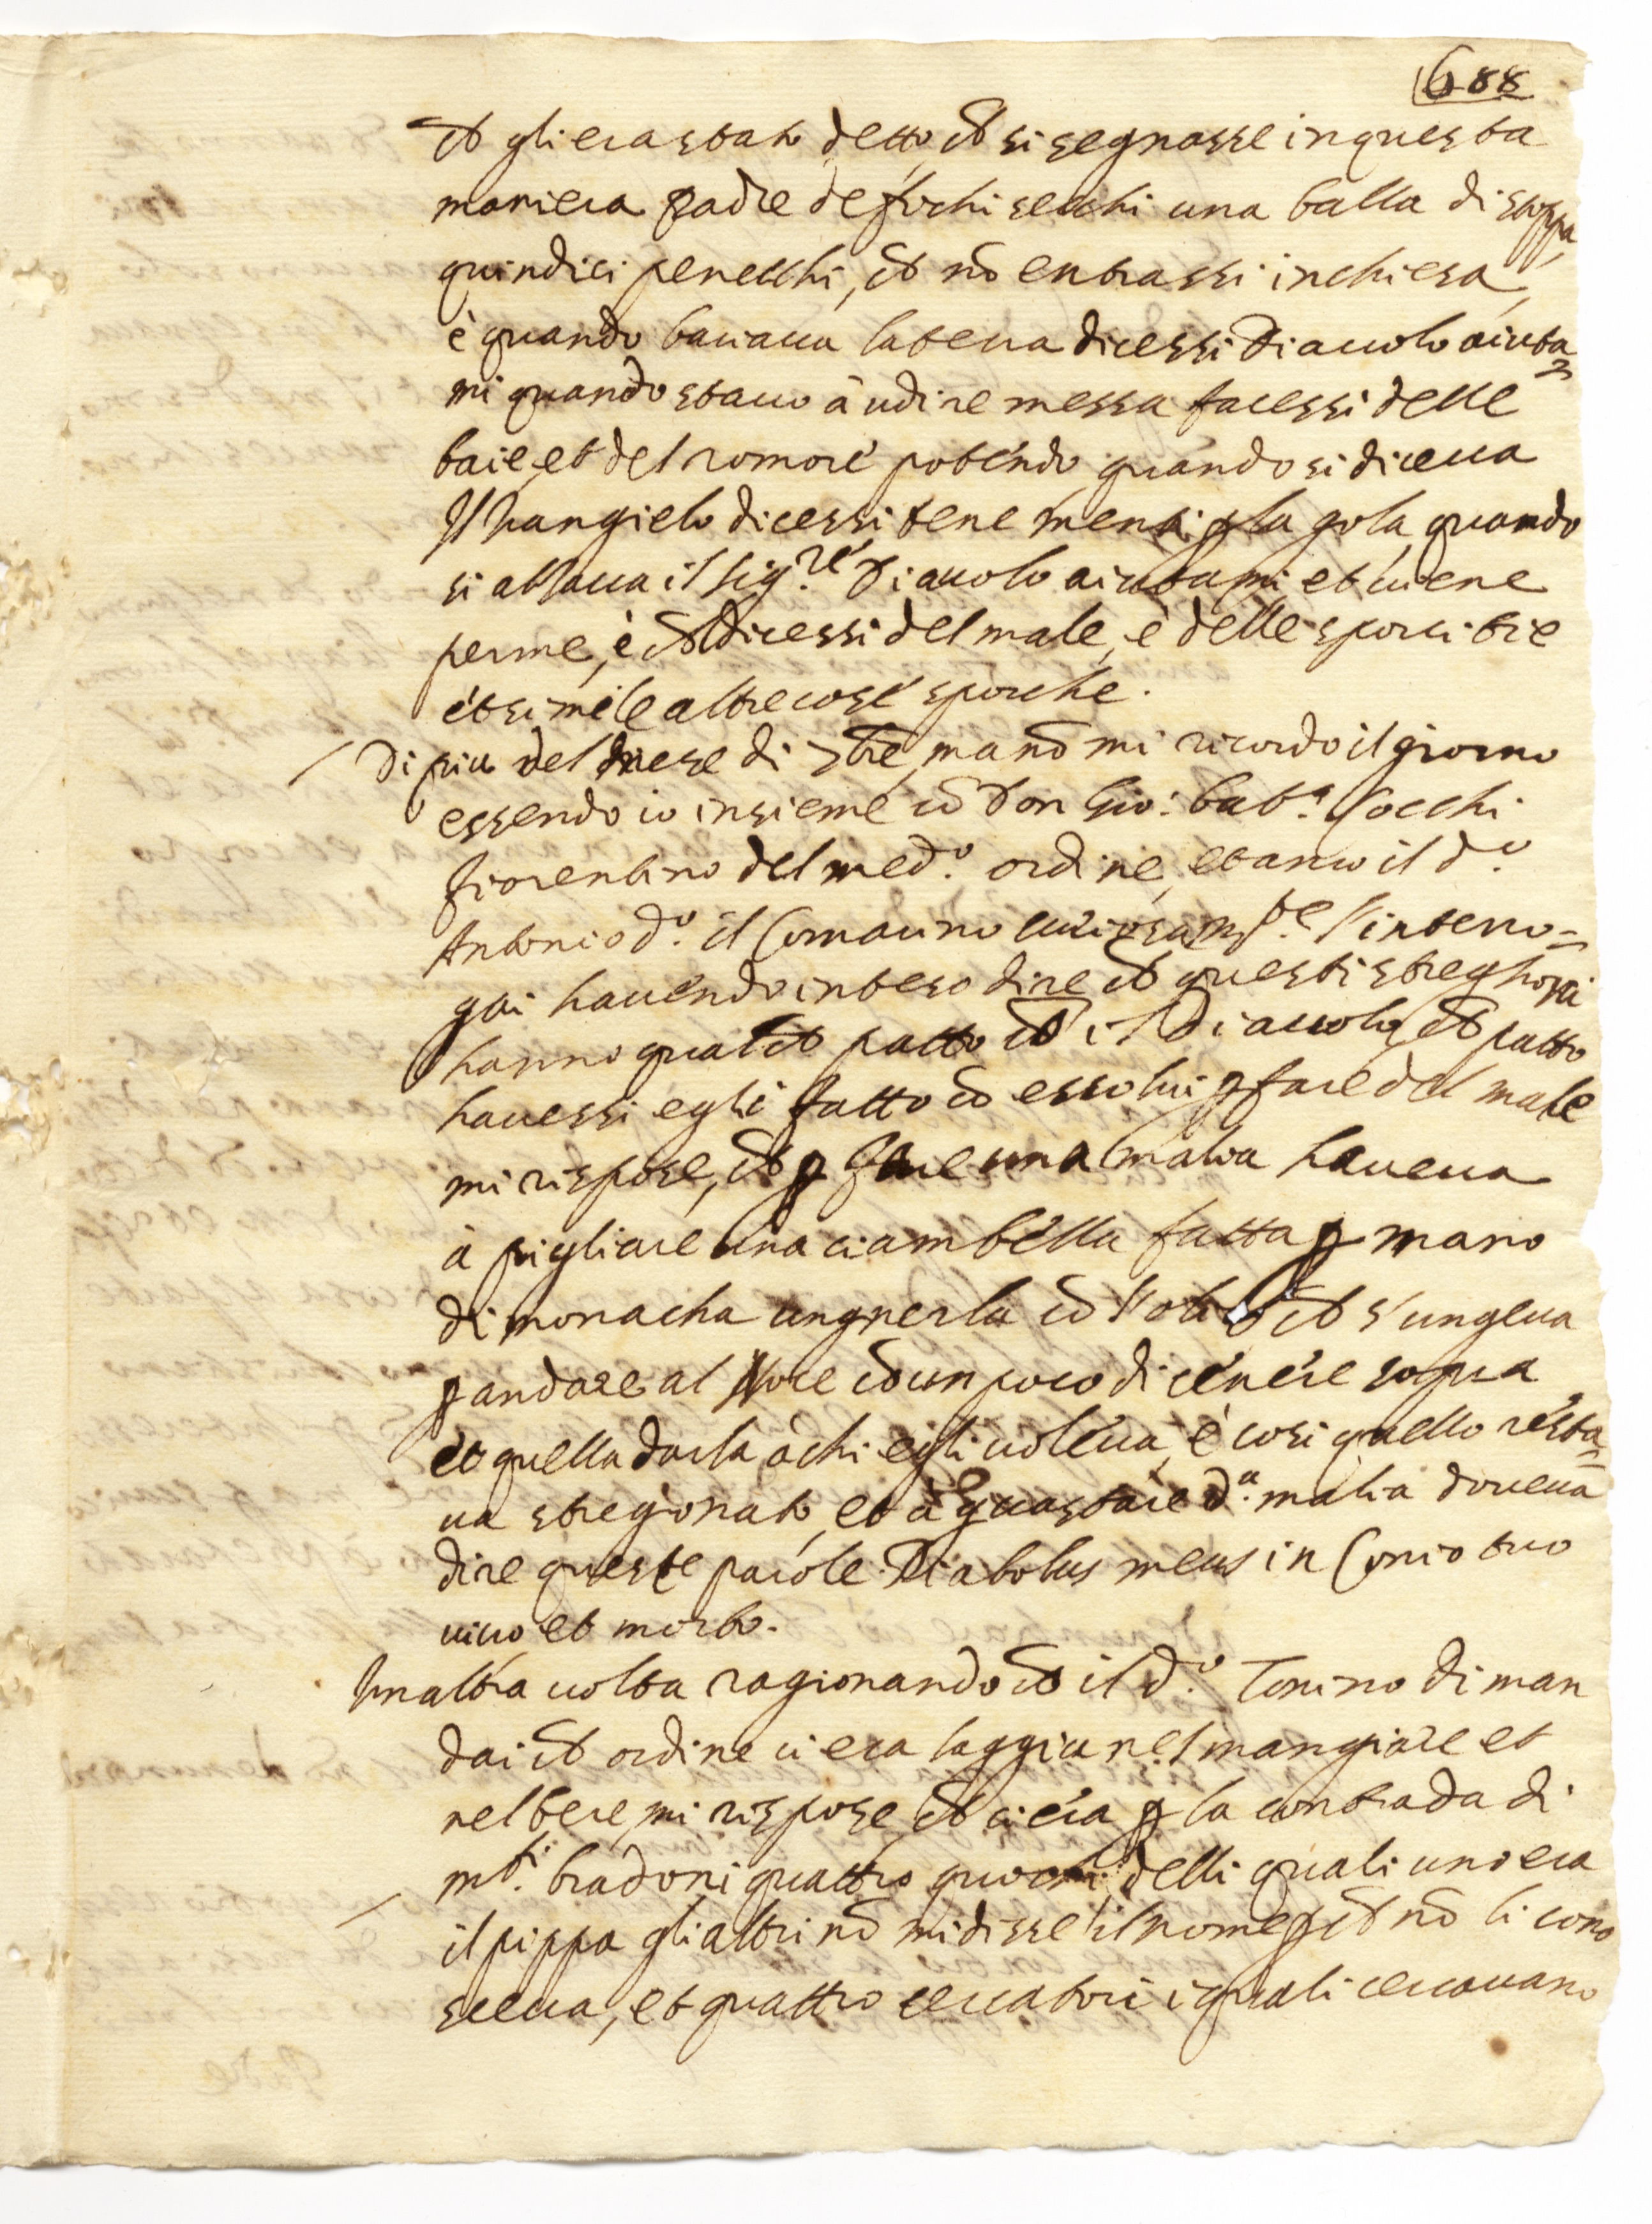 688
ch gli era stato detto, ch si segnasse in questa
maniera padre de fichi secchi una balla di stoppa,
quindici penecchi, ch nõ entrassi in chiesa,
è quando baciaua la terra dicessi Diauolo aiuta=
mi quando stauo à udire messa facessi delle
baie, et del romore potendo, quando si diceua
il Vangielo dicessi tene menti p la gola, quando
si alzaua il Sig.re Diauolo aiutami et uiene
per me, è ch dicessi del male, è delle sporcitie
et simile altre cose sporche.
Di piu del mese di 7bre, ma nõ mi ricordo il giorno
essendo io insieme cõ Don Gio: Bat.a Cocchi
fiorentino del med.o ordine, et anco il d.o
Antonio d.o il Comacino curiosam.te l'interro=
gai hauendo inteso dire ch questi streghoni
hanno qualch patto cõ il Diauolo, ch patto
hauessi egli fatto cõ esso lui p fare del male
mi rispose, ch p fare una malia haueua
à pigliare una ciambella fatta p mano
di monacha ungnerla cõ l'olio ch s'ungeua
p andare al Noce cõ un poco di cenere sopra
et quella darla à chi egli uoleua, è cosi quello resta=
ua stregonato, et à guastare d.a malia doueua
dire queste parole Diabolus meus in Conio tuo
uiuo et morto.
Un altra uolta ragionando cõ il d.o Tonino diman
dai ch ordine ci era laggiu nel mangiare et
nel bere, mi rispose, ch ci era p la contrada di
m.ti bradoni quattro quochi, delli quali uno era
il pippa gli altri nõ mi disse il nome p ch nõ li cono
sceua, et quattro cercatori i quali cercauano